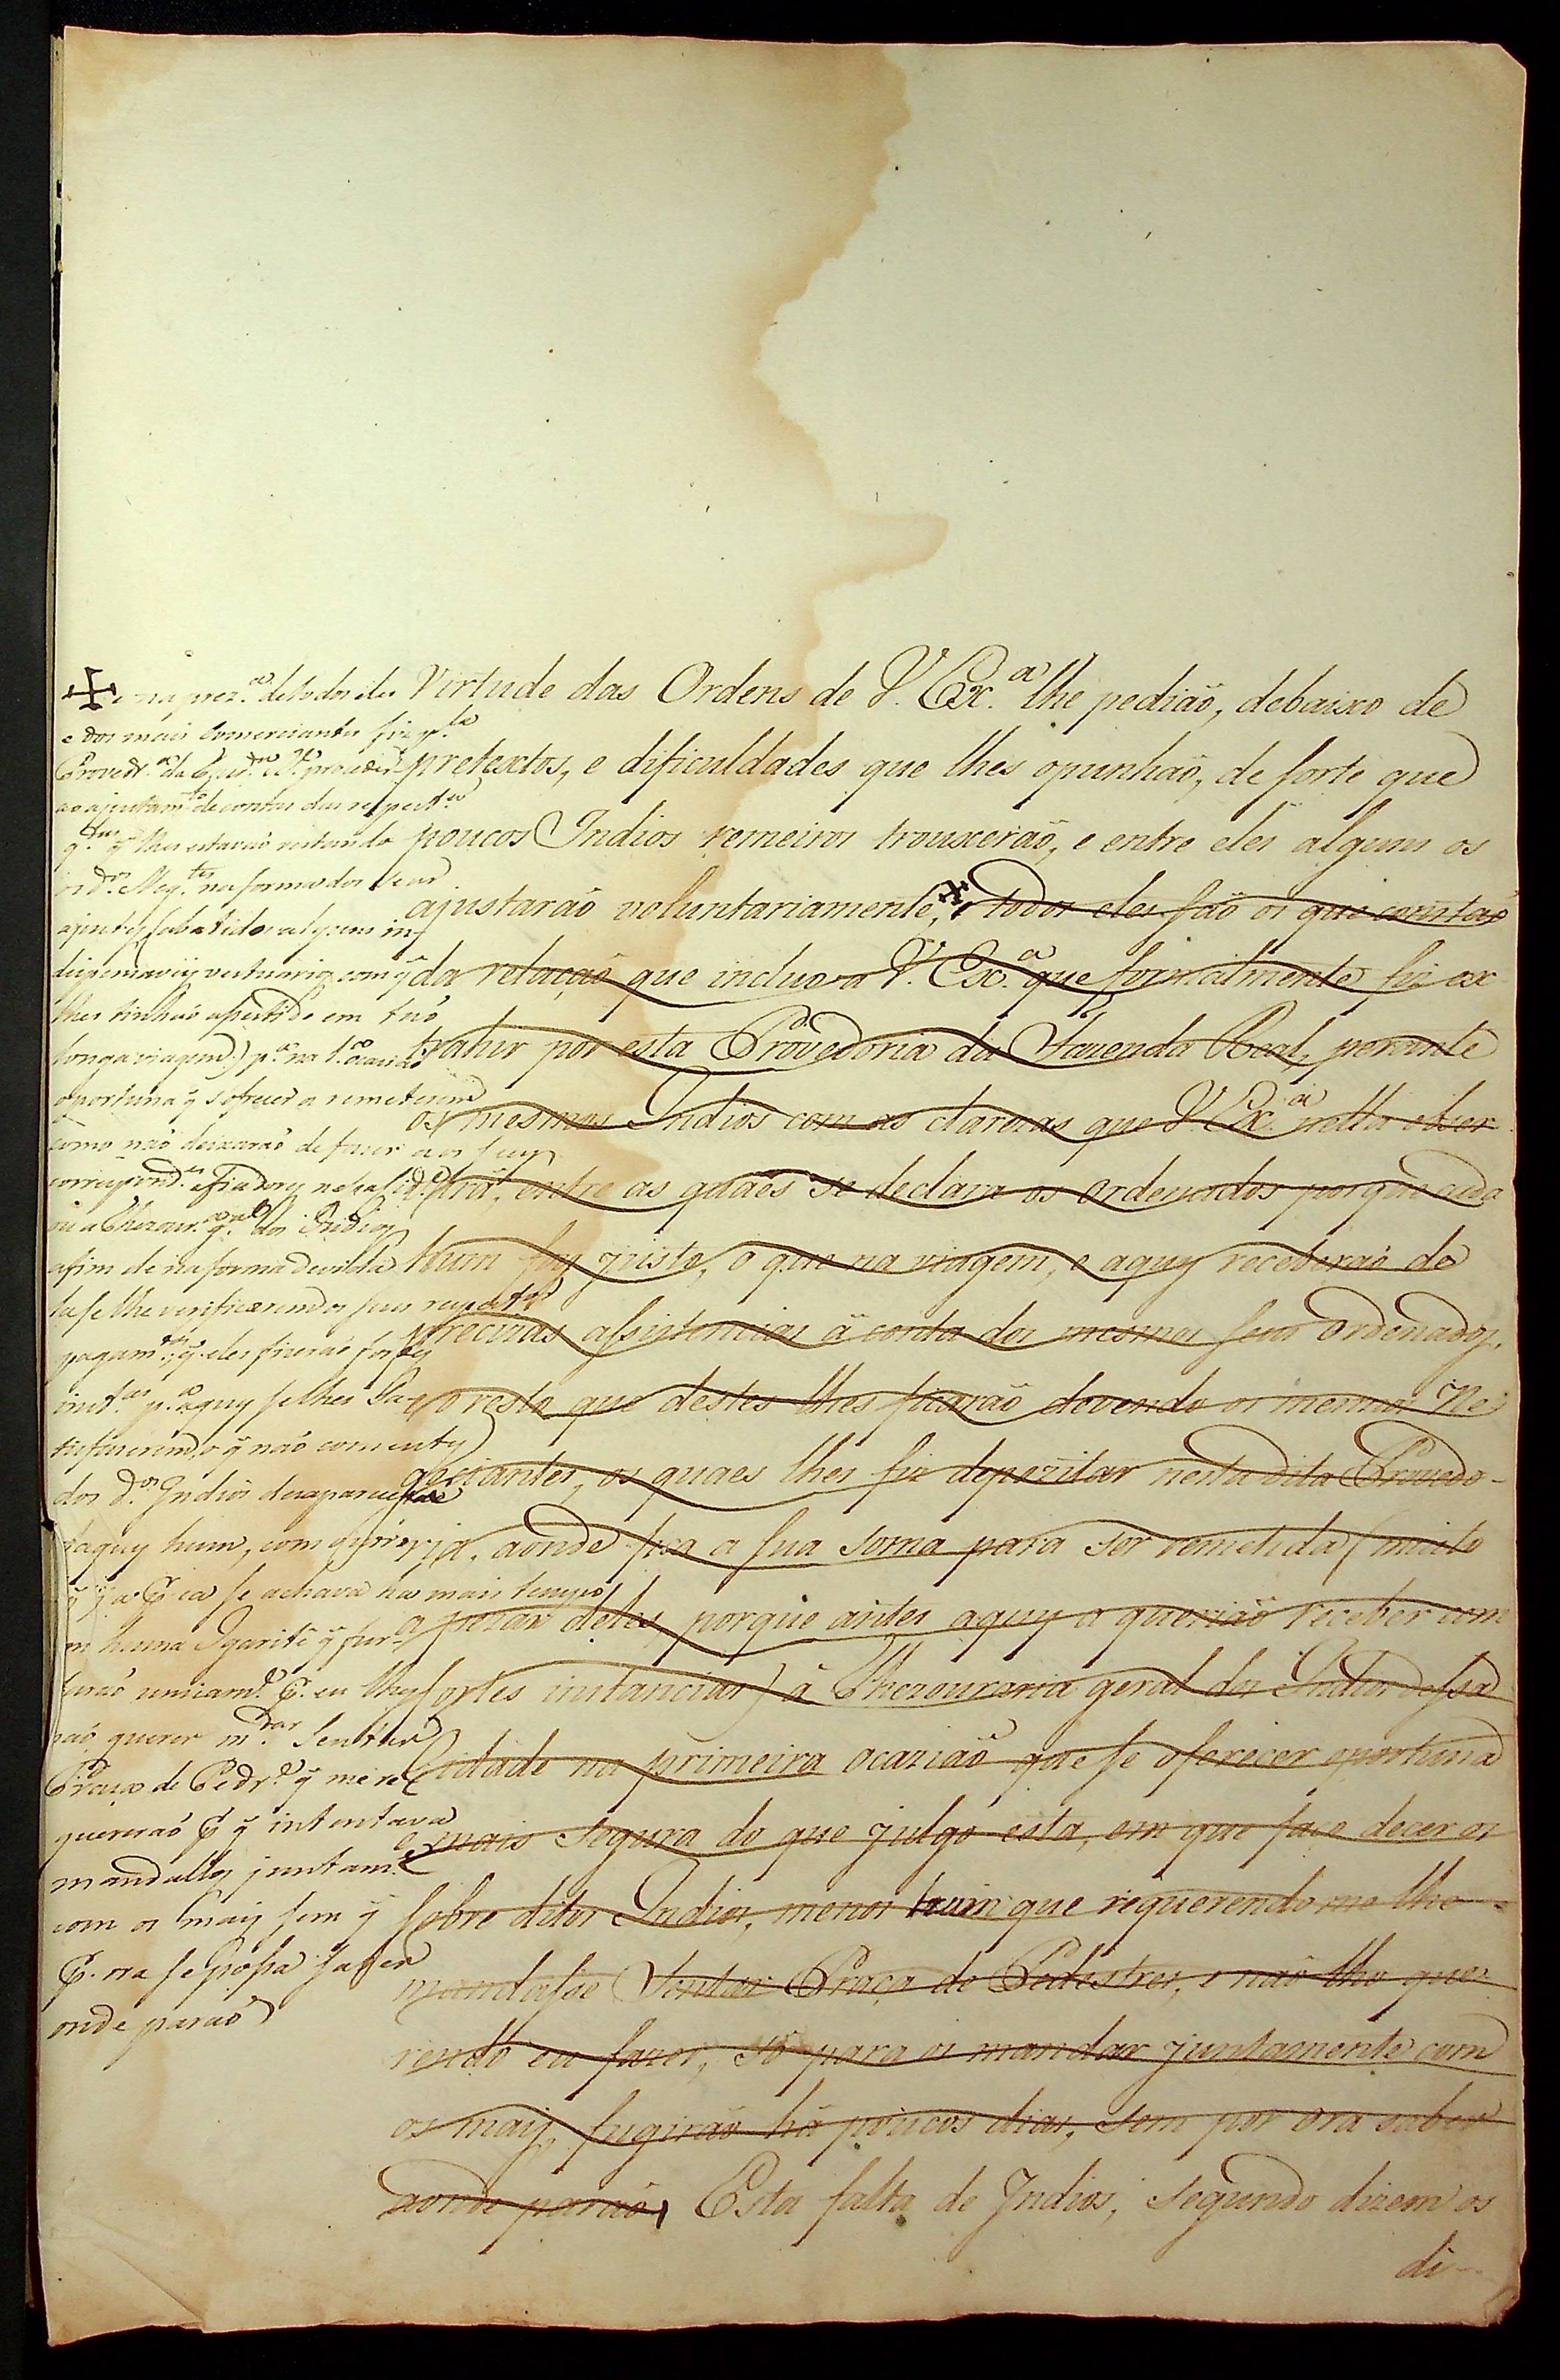 Virtude das Ordens de V. Ex.ª lhe pedião, debaixo de
pretextos, e dificuldades que lhes opunhão, de sorte que
poucos Indios remeiros trouxerão, e entre eles alguns os
ajustarão voluntariamente, e todos eles são os que constão
da relação que incluo a V. Ex.ª que formalmente fiz ex
trahir por esta Provedoria da Fazenda Real, perante
os mesmos Indios com as clarezas que V. Ex.ª nella obser
vará, entre as quaes se declara os ordenados porque cada
hum foy justo, o que na viagem, e aquy receberão de
precizas assistencias à conta dos mesmos seus ordenados,
e o resto que destes lhes ficarão devendo os mesmos Ne
gociantes, os quaes lhes fiz depozitar nesta dita Provedo-
ria, aonde fica a sua soma para ser remetida (muito
a pezar deles, porque antes aquy a querião receber com
fortes instancias) à Thezouraria geral dos Indios dessa
Cidade na primeira ocazião que se oferecer oportuna
e mais segura do que julgo esta, em que faço decer os
sobre ditos Indios, menos hum que requerendo me lhe
mandasse sentar Praça de Pedestres, e não lho que-
rendo eu fazer, só para os mandar juntamente com
os mais, fugirão há poucos dias, sem por ora saber
aonde parão, Esta falta de Indios, segundo dizem os
di-
e na prez.ª de todos eles
e dos mais Comerciantes fiz p.la
Provedr.ª da Faz.da R.l proceder
ao ajustam.to de contas das respect.as
q.tias q̃ lhes estavão restando
os d.os Neg.tes na forma dos seus
ajustes (abatidos alguns in
dispensaveis vestuarios com q̃
lhes tinhão asestido em tão
longa viagem) p.ª na 1.ª ocazião
oportuna q̃ s'ofrecer a remeterem
como não deixarão de fazer aos seus
correspond.es e Fiadores nesa Cid.e
ou a Thezour.ª g.al dos Indios
afim de na forma devida
se lhe verificarem os seus respect.os
pagam.tos q̃ eles fizerão fortes
inst.as p.ª aquy se lhes Sa
tisfazerem, q̃ não consenty
dos d.os Indios desapareceu
daquy hum, com outro
q̃ já p. cá se achava ha mais tempo
em huma Igarité q̃ fur
tarão unicam.e p. eu lhes
não querer m.dar sentar
Praça de Pedr.e q̃ me re
quererão p. q̃ intentava
mandallos juntam.e
com os mais sem q̃
p. ora se possa saber
onde parão